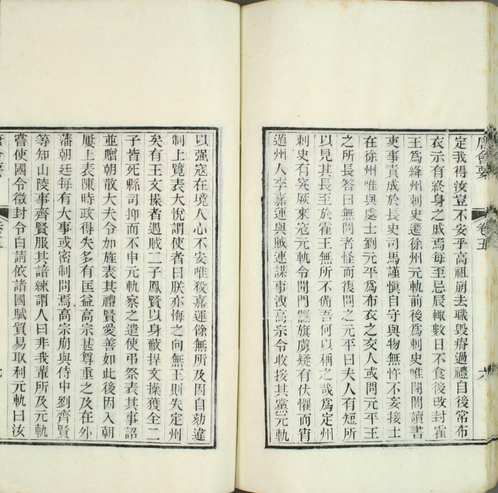 唐會要 卷五
定我得汝豈不安乎高祖崩去職毀瘠過禮自後常布
衣示有終身之戚焉每至忌辰輒數日不食後改封霍
王為絳州刺史遷徐州元軌前後為刺史唯閉閣讀書
吏事責成於長史司馬謹慎自守與物無忤不妄接士
在徐州唯與處士劉元平為布衣之交人或問元平王
之所長答曰無問者怪而復問之元平曰夫人有短所
以見其長至於霍王無所不備吾何以稱之哉為定州
刺史突厥來寇元軌令開門偃旗虜疑有伏懼而宵
遁州人李嘉運與賊連謀事洩高宗令收按其黨元軌
以強寇在境人心不安唯殺嘉運餘無所及因自劾違
制上覽表大悅謂使者曰朕亦悔之向無王則失定州
矣有王文操者遇賊二子鳳賢以身蔽捍文操獲全二
子皆死縣司抑而不申元軌察之遣使弔祭表其事詔
並贈朝散大夫令如旌表其禮賢愛善如此後因入朝
屢上表陳時政得失多有匡益高宗甚尊重之及在外
藩朝廷每有大事或密制問焉高宗崩與侍中劉齊賢
等知山陵事齊賢服其諳練謂人曰非我輩所及元軌
嘗使國令徵封令白請依諸國賦貿易取利元軌曰汝